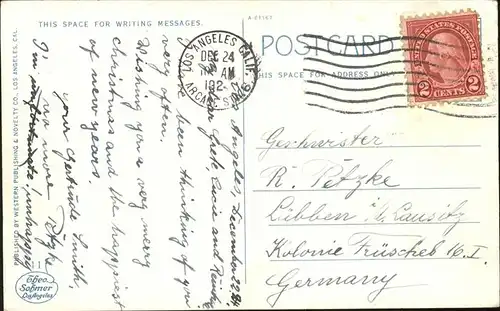 THIS SPACE FOR WRITING MESSAGES.
A-87167
POSTCARD
THIS SPACE FOR ADDRESS ONLY
LOS ANGELES, CALIF.
DEC 24
AM
192
ARCADE STA
UNITED STATES POSTAGE
2 CENTS 2
Los Angeles, December 22.
Dear Greth, Lucie and
I have been thinking of you
very often.
Wishing you a very merry
christmas and the happiest
of new years.
your Gertrude Smith
no more Petzke
I'm
Geschwister
R. Petzke
Lübben i/ Lausitz
Kolonie 16 I.
Germany
PUBLISHED BY WESTERN PUBLISHING & NOVELTY CO., LOS ANGELES, CAL.
Theo. Sohmer
Los Angeles